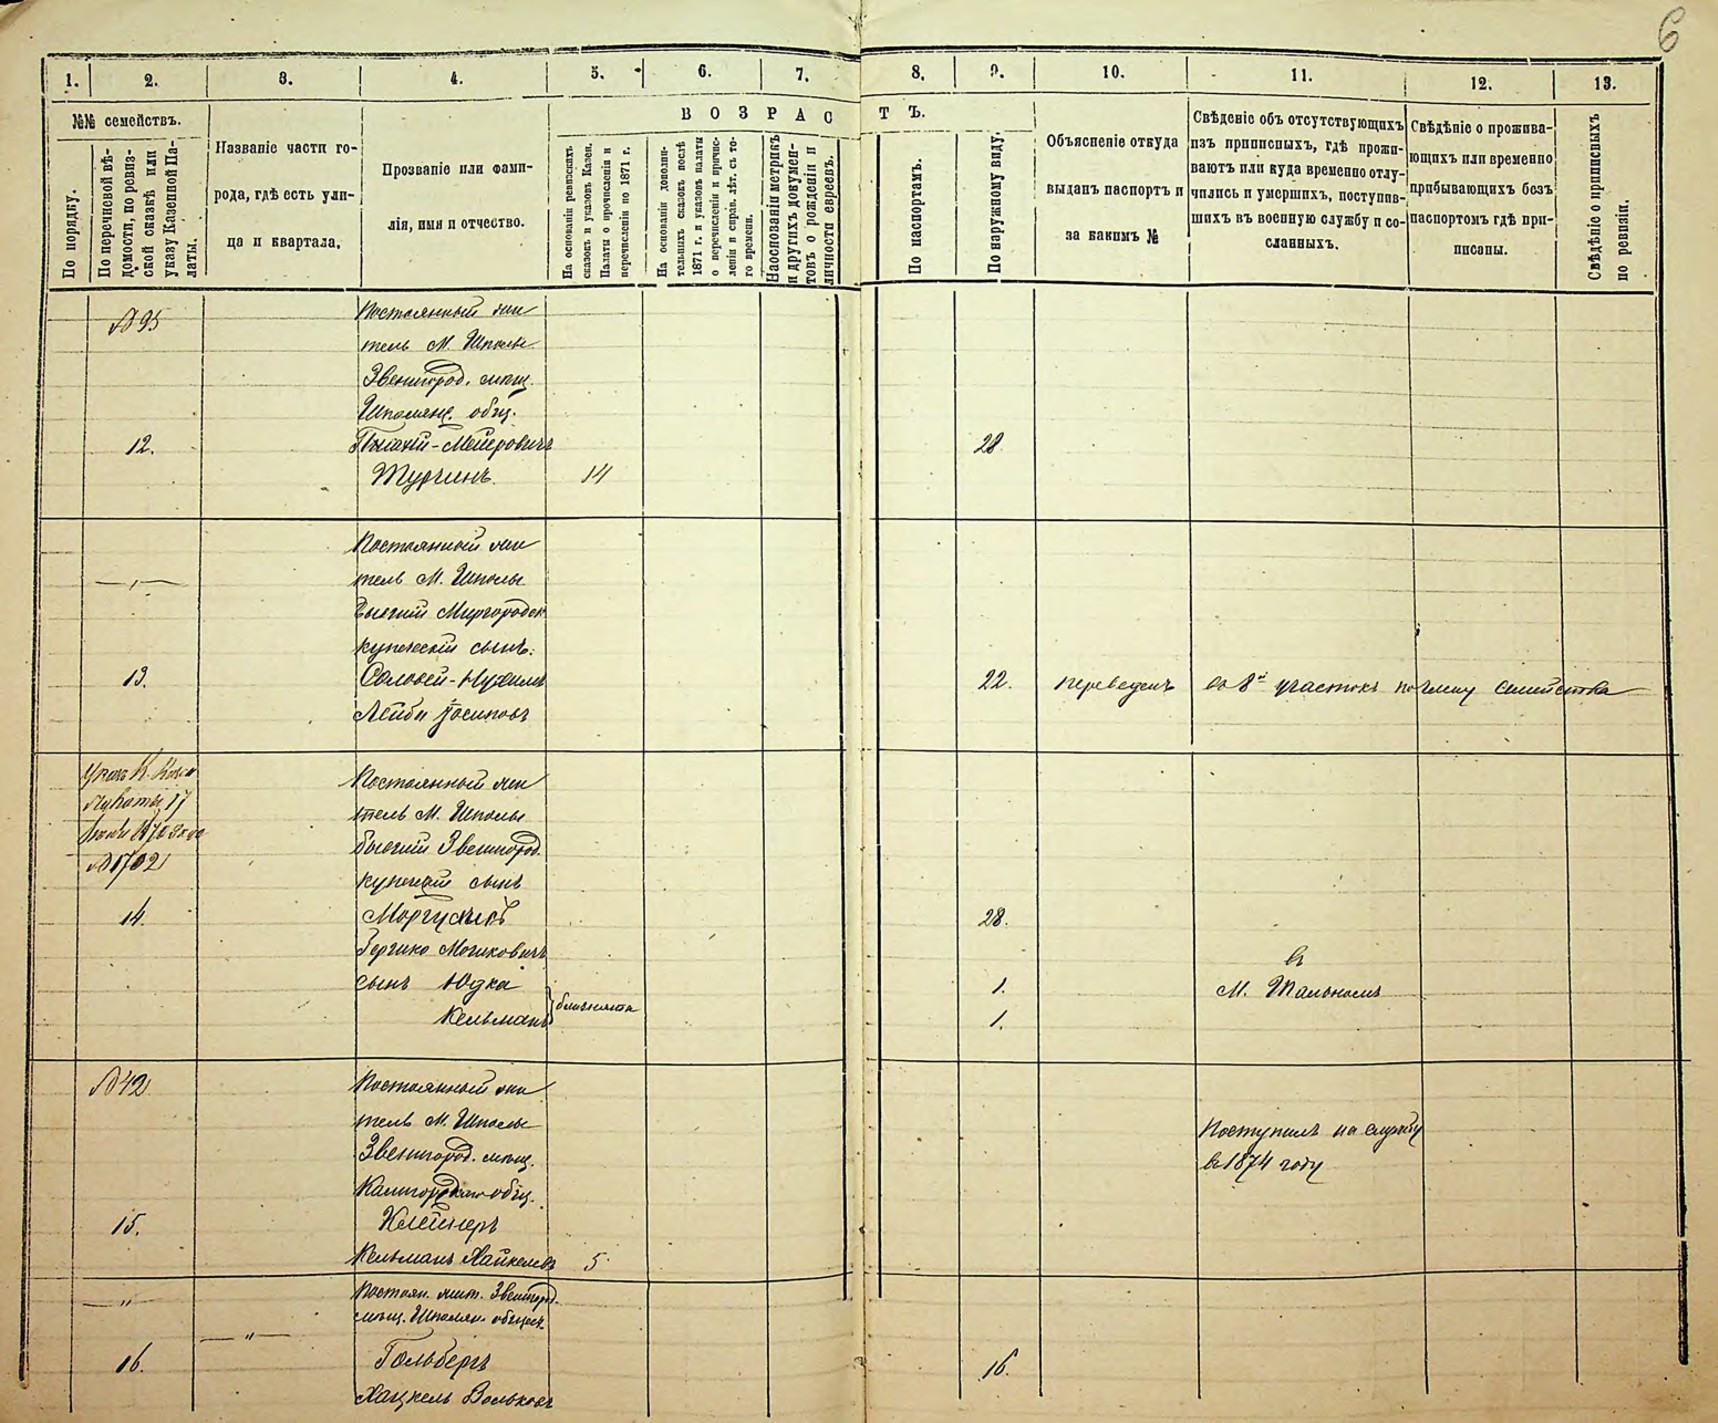 6
1. 2. 3. 4. 5. 6. 7. 8. 9. 10. 11. 12. 13.
№№ семействъ.
По порядку.
По перечневой вѣ-
домости, по ревиз-
ской сказкѣ или
указу Казенной Па-
латы.
Названіе части го-
рода, гдѣ есть ули-
ца и квартала.
Прозваніе или фами-
лія, имя и отчество.
ВОЗРАСТЪ.
На основаніи ревизскихъ
сказокъ и указовъ Казен.
Палаты о причисленіи и
перечисленіи по 1871 г.
На основаніи дополни-
тельныхъ сказокъ послѣ
1871 г. и указовъ палаты
о перечисленіи и причис-
леніи и справ. лѣт. съ то-
го времени.
На основаніи метрикъ
и другихъ докумен-
товъ о рожденіи и
личности евреевъ.
По паспортамъ.
По наружному виду.
Объясненіе откуда
выданъ паспортъ и
за какимъ №
Свѣденіе объ отсутствующихъ
изъ приписныхъ, гдѣ прожи-
ваютъ или куда временно отлу-
чились и умершихъ, поступив-
шихъ въ военную службу и со-
сланныхъ.
Свѣдѣніе о прожива-
ющихъ или временно
прибывающихъ безъ
паспортомъ гдѣ при-
писаны.
Свѣдѣніе о приписныхъ
по ревизіи.
№ 95
Постоянный жи
тель М. Шполы
Звенигород. мѣщ.
Шполянс. общ.
12. -Мейеровичъ 28
Турчинъ 14
Постоянный жи
тель М. Шполы
бывшій Миргородск
купеческій сынъ:
13. Соловей-Нухимъ 22. переведенъ въ 8й участокъ семейства
Лейби Іосиповъ
Указъ К. Каз.
Палаты 17
1870 года
№ 1702
Постоянный жи
тель М. Шполы
бывшій Звенигород.
купеческій сынъ
14. 28.
Мошковичъ
сынъ Юдка 1. въ
М. Тальномъ
Кельманъ близнята 1.
№ 42
Постоянный жи
тель М. Шполы
Звенигород. мѣщ.
общ.
Поступилъ на службу
въ 1874 году
15. Клейнеръ
Кельманъ Хайкелевъ 5
— " —
Постоян. жит. Звенигород.
мѣщ. Шполян. общест.
— " —
16. Гольбергъ 16.
Хацкель Вольковъ